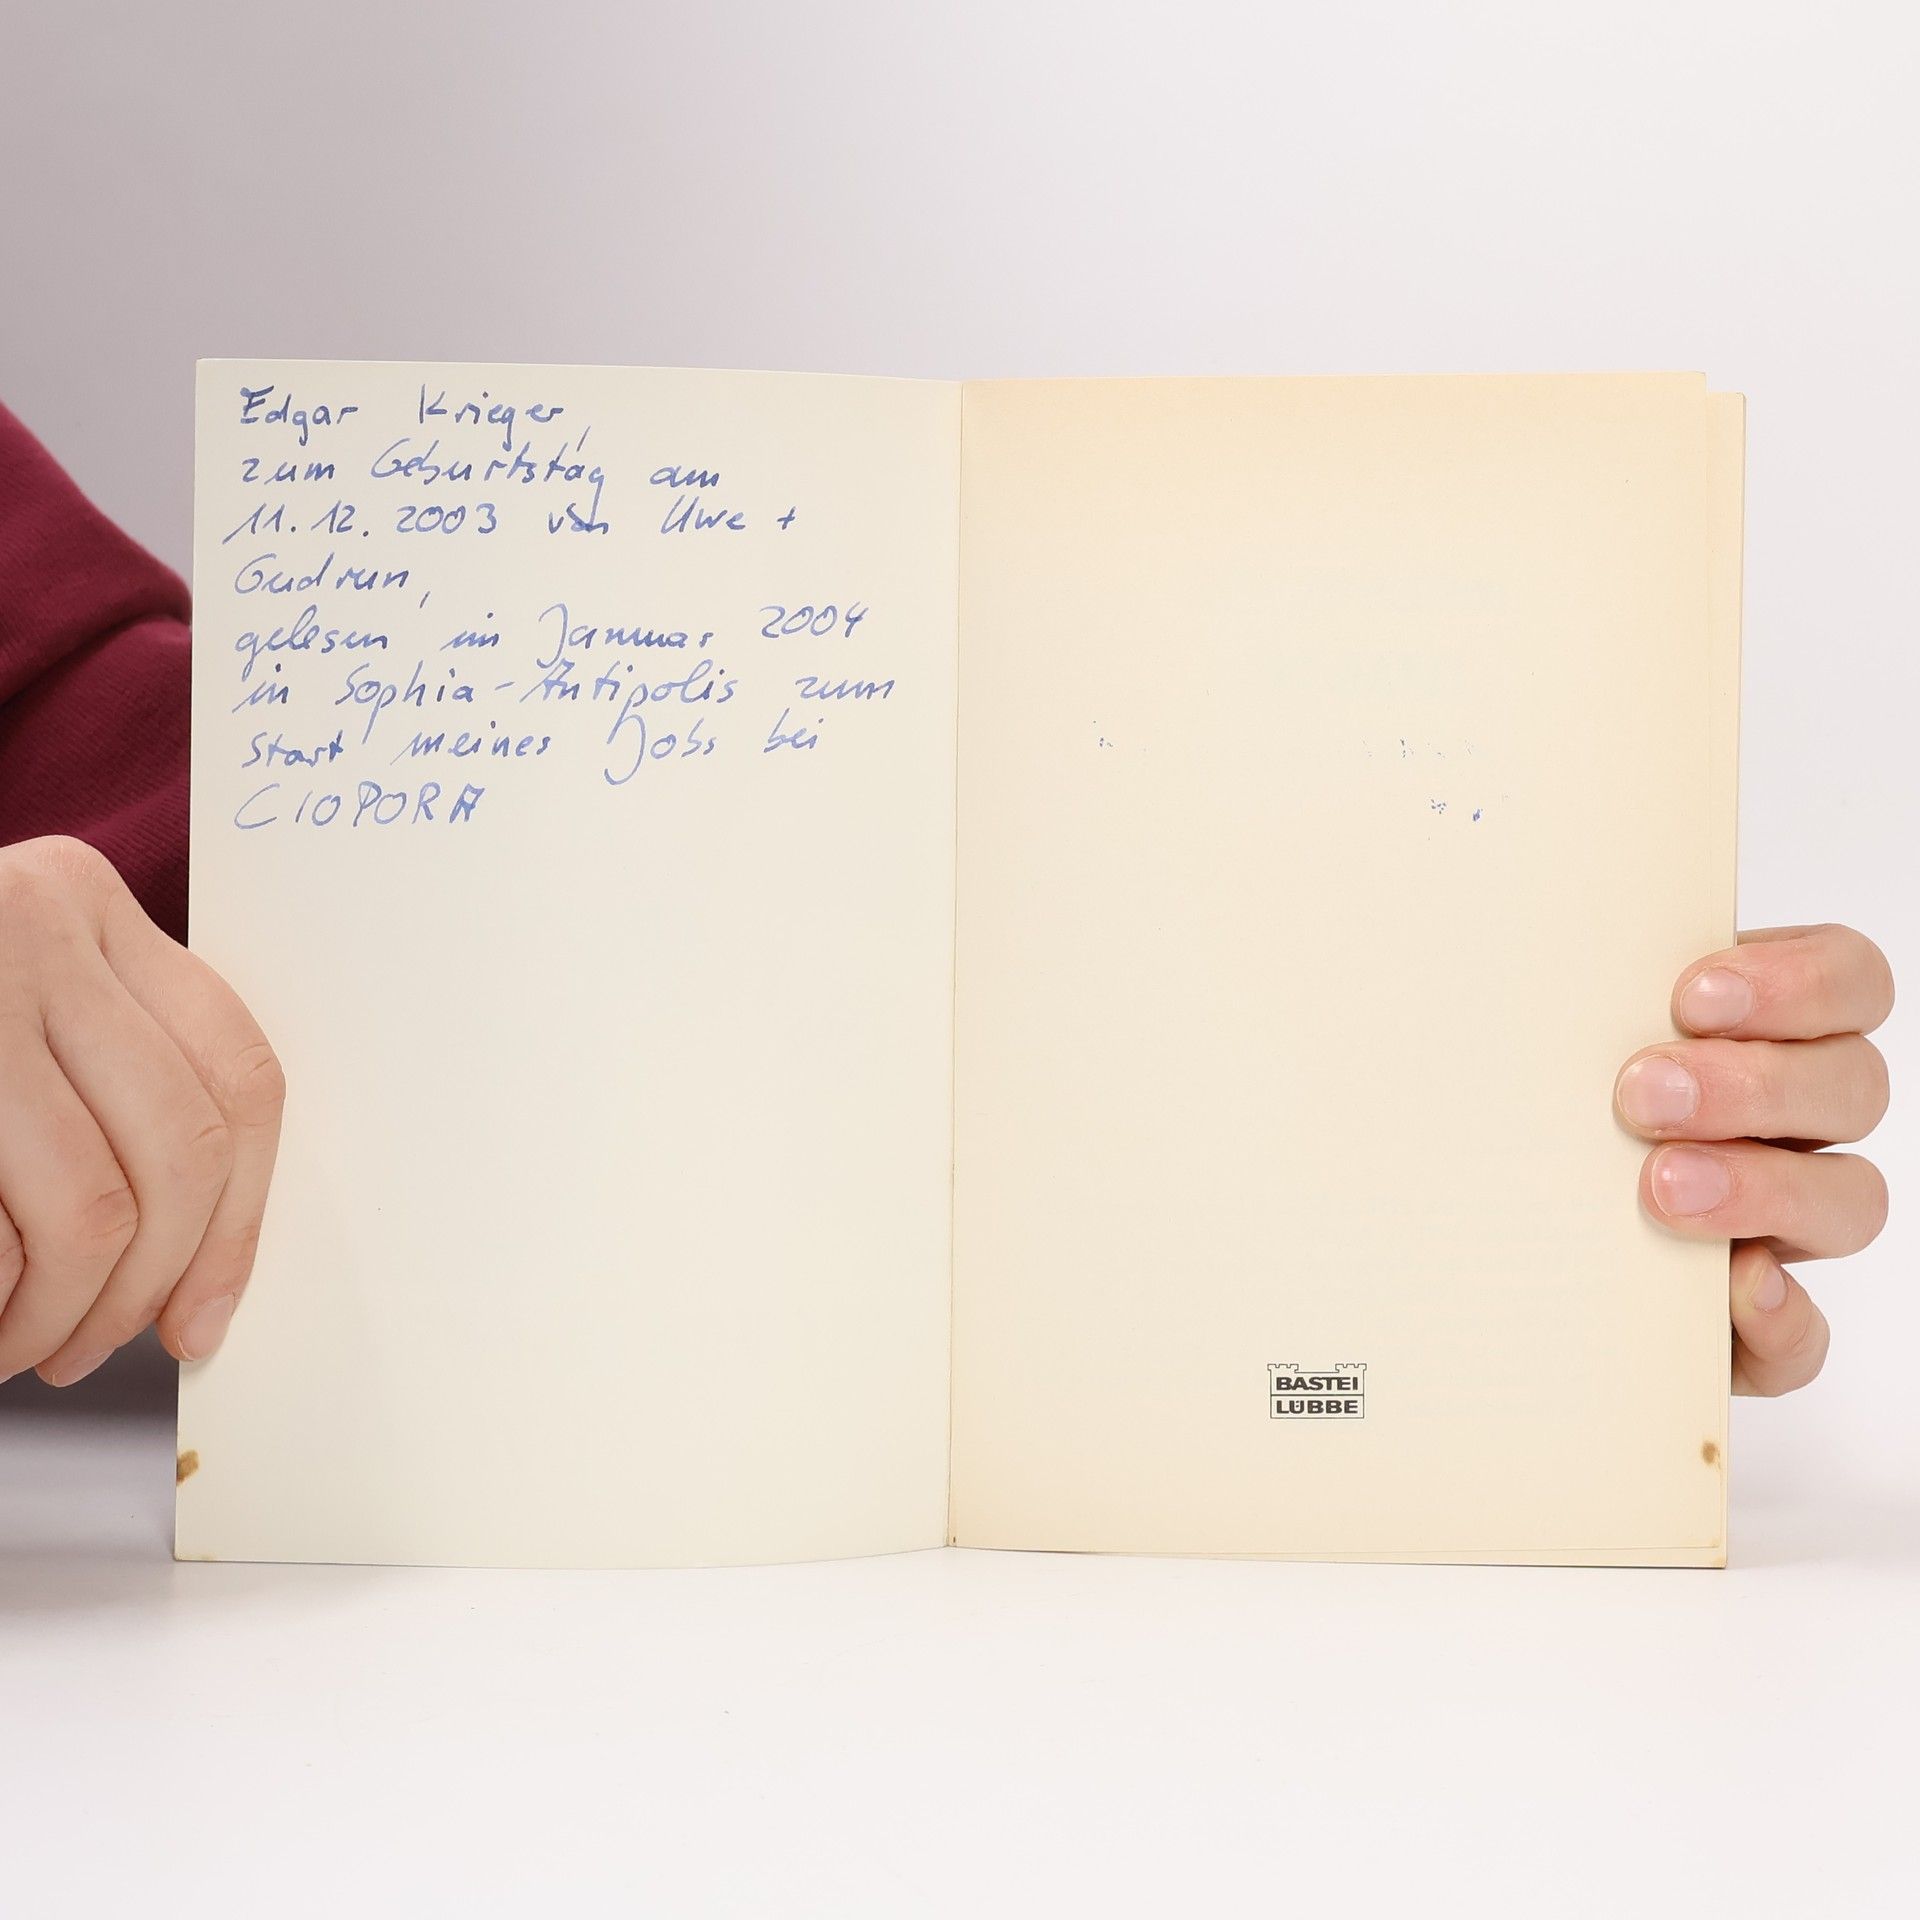 Edgar Krieger,
zum Geburtstag am
11.12.2003 von Uwe +
Gudrun,
gelesen im Januar 2004
in Sophia-Antipolis zum
Start meines Jobs bei
CIOPORA
BASTEI
LÜBBE